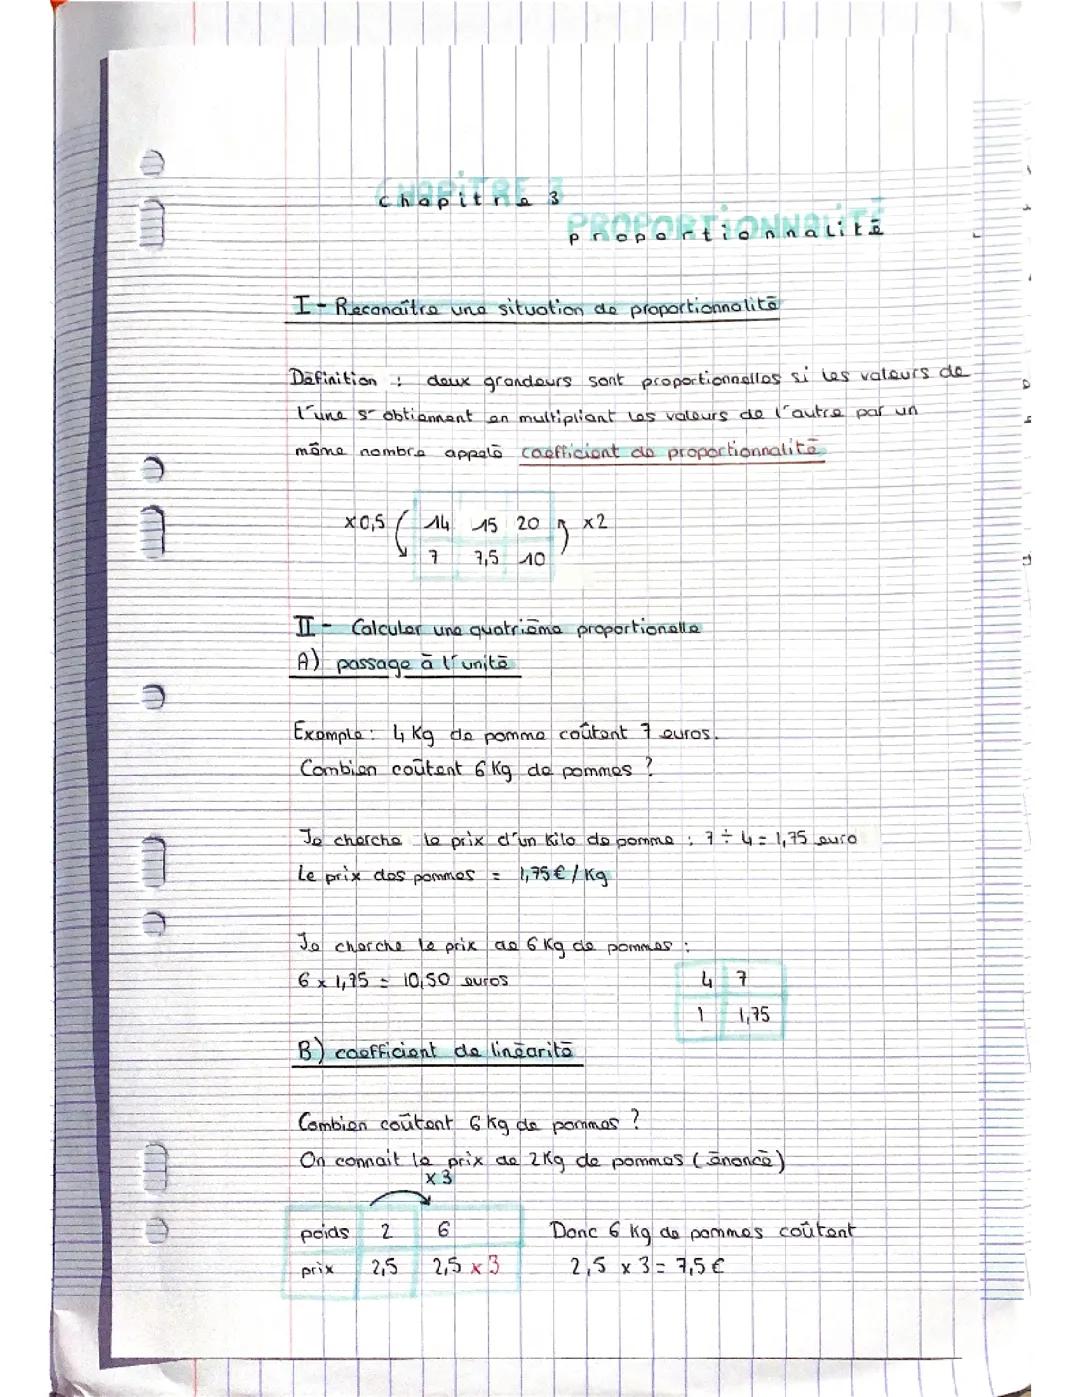 CHAPITRE 3
chapitre 3
PROPORTIONNALITÉ
proportionnalité
I - Reconaître une situation de proportionnalité
Définition : deux grandeurs sont proportionnelles si les valeurs de
l'une s'obtiennent en multipliant les valeurs de l'autre par un
même nombre appelé coefficient de proportionnalité
x0,5 14 15 20 x2
7 7,5 10
II - Calculer une quatrième proportionelle
A) passage à l'unité
Exemple : 4 Kg de pomme coûtent 7 euros.
Combien coûtent 6 Kg de pommes ?
Je cherche le prix d'un kilo de pomme : 7 ÷ 4 = 1,75 euro
Le prix des pommes = 1,75 € / Kg
Je cherche le prix de 6 Kg de pommes :
6 x 1,75 = 10,50 euros
4 7
1 1,75
B) coefficient de linéarité
Combien coûtent 6 Kg de pommes ?
On connait le prix de 2 Kg de pommes (énoncé)
x 3
poids 2 6 Donc 6 Kg de pommes coûtent
prix 2,5 2,5 x 3 2,5 x 3 = 7,5 €